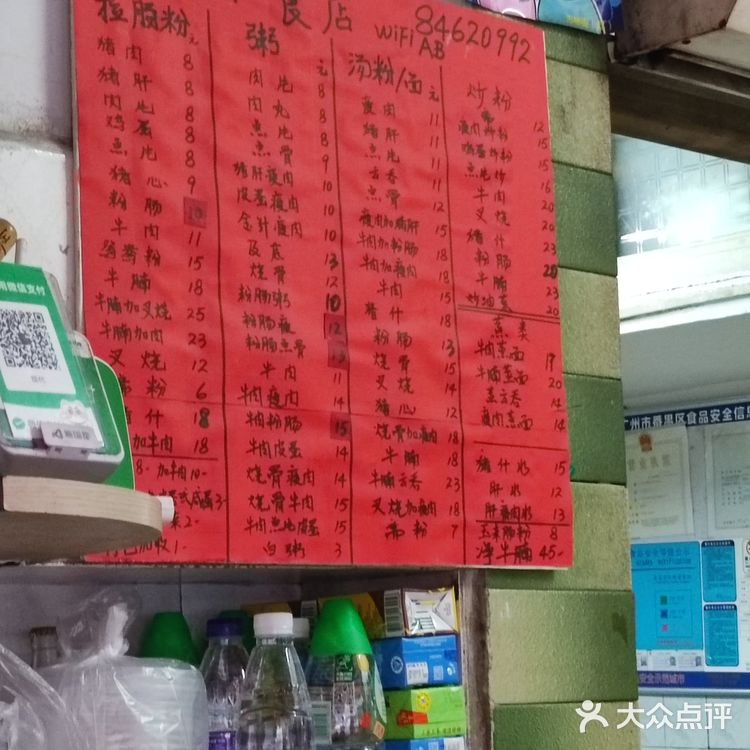 良店
WiFi 84620992
AB
拉肠粉 元
猪肉 8
猪肝 8
肉片 8
鸡蛋 8
鱼片 8
猪心 9
粉肠 10
牛肉 11
鸳鸯粉 15
牛腩 18
牛腩加叉烧 25
牛腩加肉 22
叉烧 12
斋粉 6
猪什 18
加牛肉 18
8- 加牛肉10-
3-
2-
打包加收1-
粥 元
肉片 8
肉丸 8
鱼片 8
鱼骨 9
猪肝瘦肉 10
皮蛋瘦肉 10
金针瘦肉 10
及底 13
烧骨 12
粉肠粥 10
粉肠瘦 12
粉肠鱼骨 13
牛肉 11
牛肉瘦肉 14
牛肉粉肠 15
牛肉皮蛋 14
烧骨瘦肉 14
烧骨牛肉 15
牛肉鱼片皮蛋 15
白粥 3
汤粉/面 元
瘦肉 11
猪肝 11
鱼片 11
云吞 11
鱼骨 12
瘦肉加猪肝
牛肉加粉肠 18
牛肉加瘦肉 18
牛肉 15
猪什 18
粉肠 13
烧骨 14
叉烧 14
猪心 12
烧骨加瘦肉 18
牛腩 18
牛腩云吞 23
叉烧加瘦肉 18
斋粉 7
炒粉
斋 12
瘦肉炒粉 15
鸡蛋炒粉 15
鱼片炒 16
牛肉 20
叉烧 20
猪什 23
粉肠 20
牛腩 23
炒油菜 20
蒸类
牛肉蒸面 17
牛腩蒸面 20
蒸云吞 14
瘦肉蒸面 14
猪什水 15
肝水 12
肝瘦肉水 13
玉米肠粉 8
净牛腩 45-
用微信支付
广州市番禺区食品安全信息
营业执照
品安全示范城市
大众点评